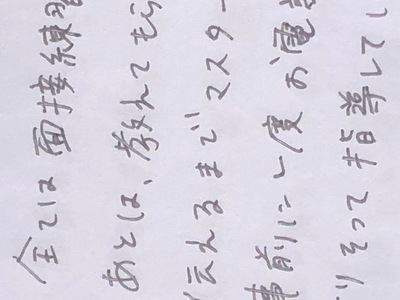 全ては面接練習
あとは、教えてもら
伝えるまでマスター
事前に一度お電
りそって指導してし